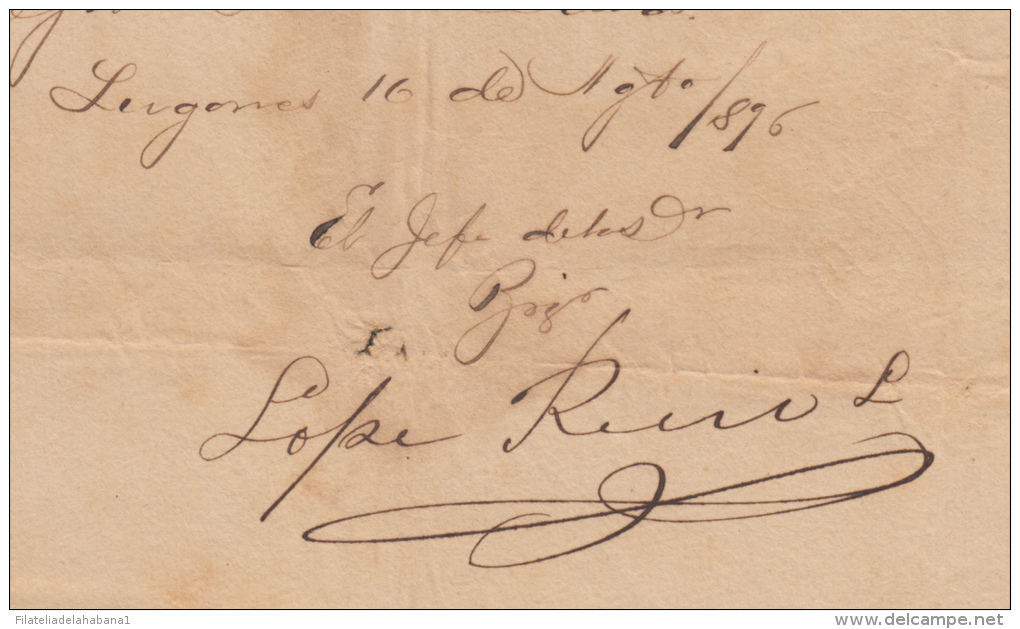 Lugones 16 de Agto/896
El Jefe de las Dr
Brigs
Lope Recio L
Filateliadelahabana1
©delcampe.net